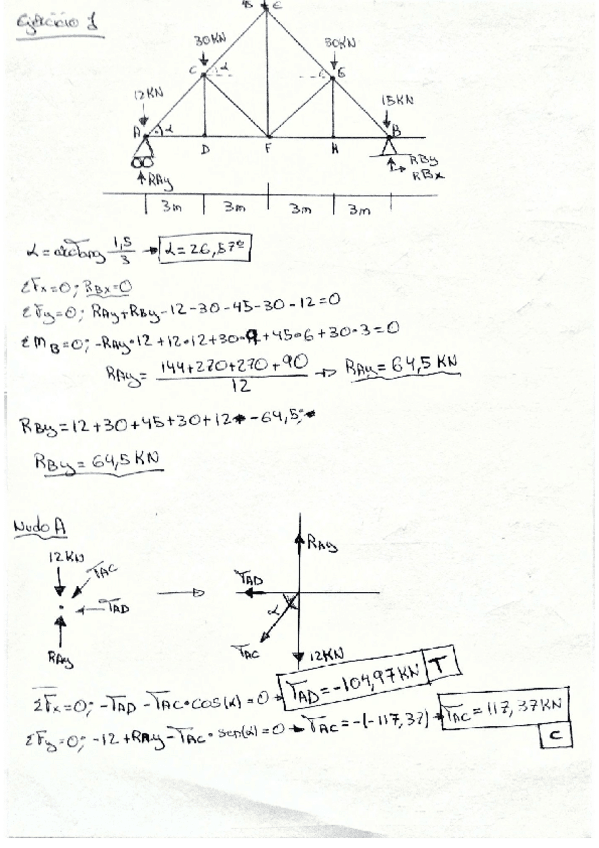 Ejercicio 1
E
30KN
30KN
C
α
G
12KN
15KN
A
α
D
F
H
B
RAy
RBy
RBx
3m
3m
3m
3m
α = arctang 1,5/3 → α = 26,57º
ΣFx=0; RBx=0
ΣFy=0; RAy+RBy-12-30-45-30-12=0
ΣMB=0; -RAy·12+12·12+30·9+45·6+30·3=0
RAy= 144+270+270+90/12 → RAy=64,5 KN
RBy=12+30+45+30+12-64,5;
RBy=64,5KN
Nudo A
12KN
TAC
TAD
RAy
RAy
TAD
α
TAC
12KN
ΣFx=0; -TAD - TAC·cos(α)=0 → TAD=-104,97KN T
ΣFy=0; -12+RAy-TAC·sen(α)=0 → TAC=-(-117,37) → TAC=117,37KN
C